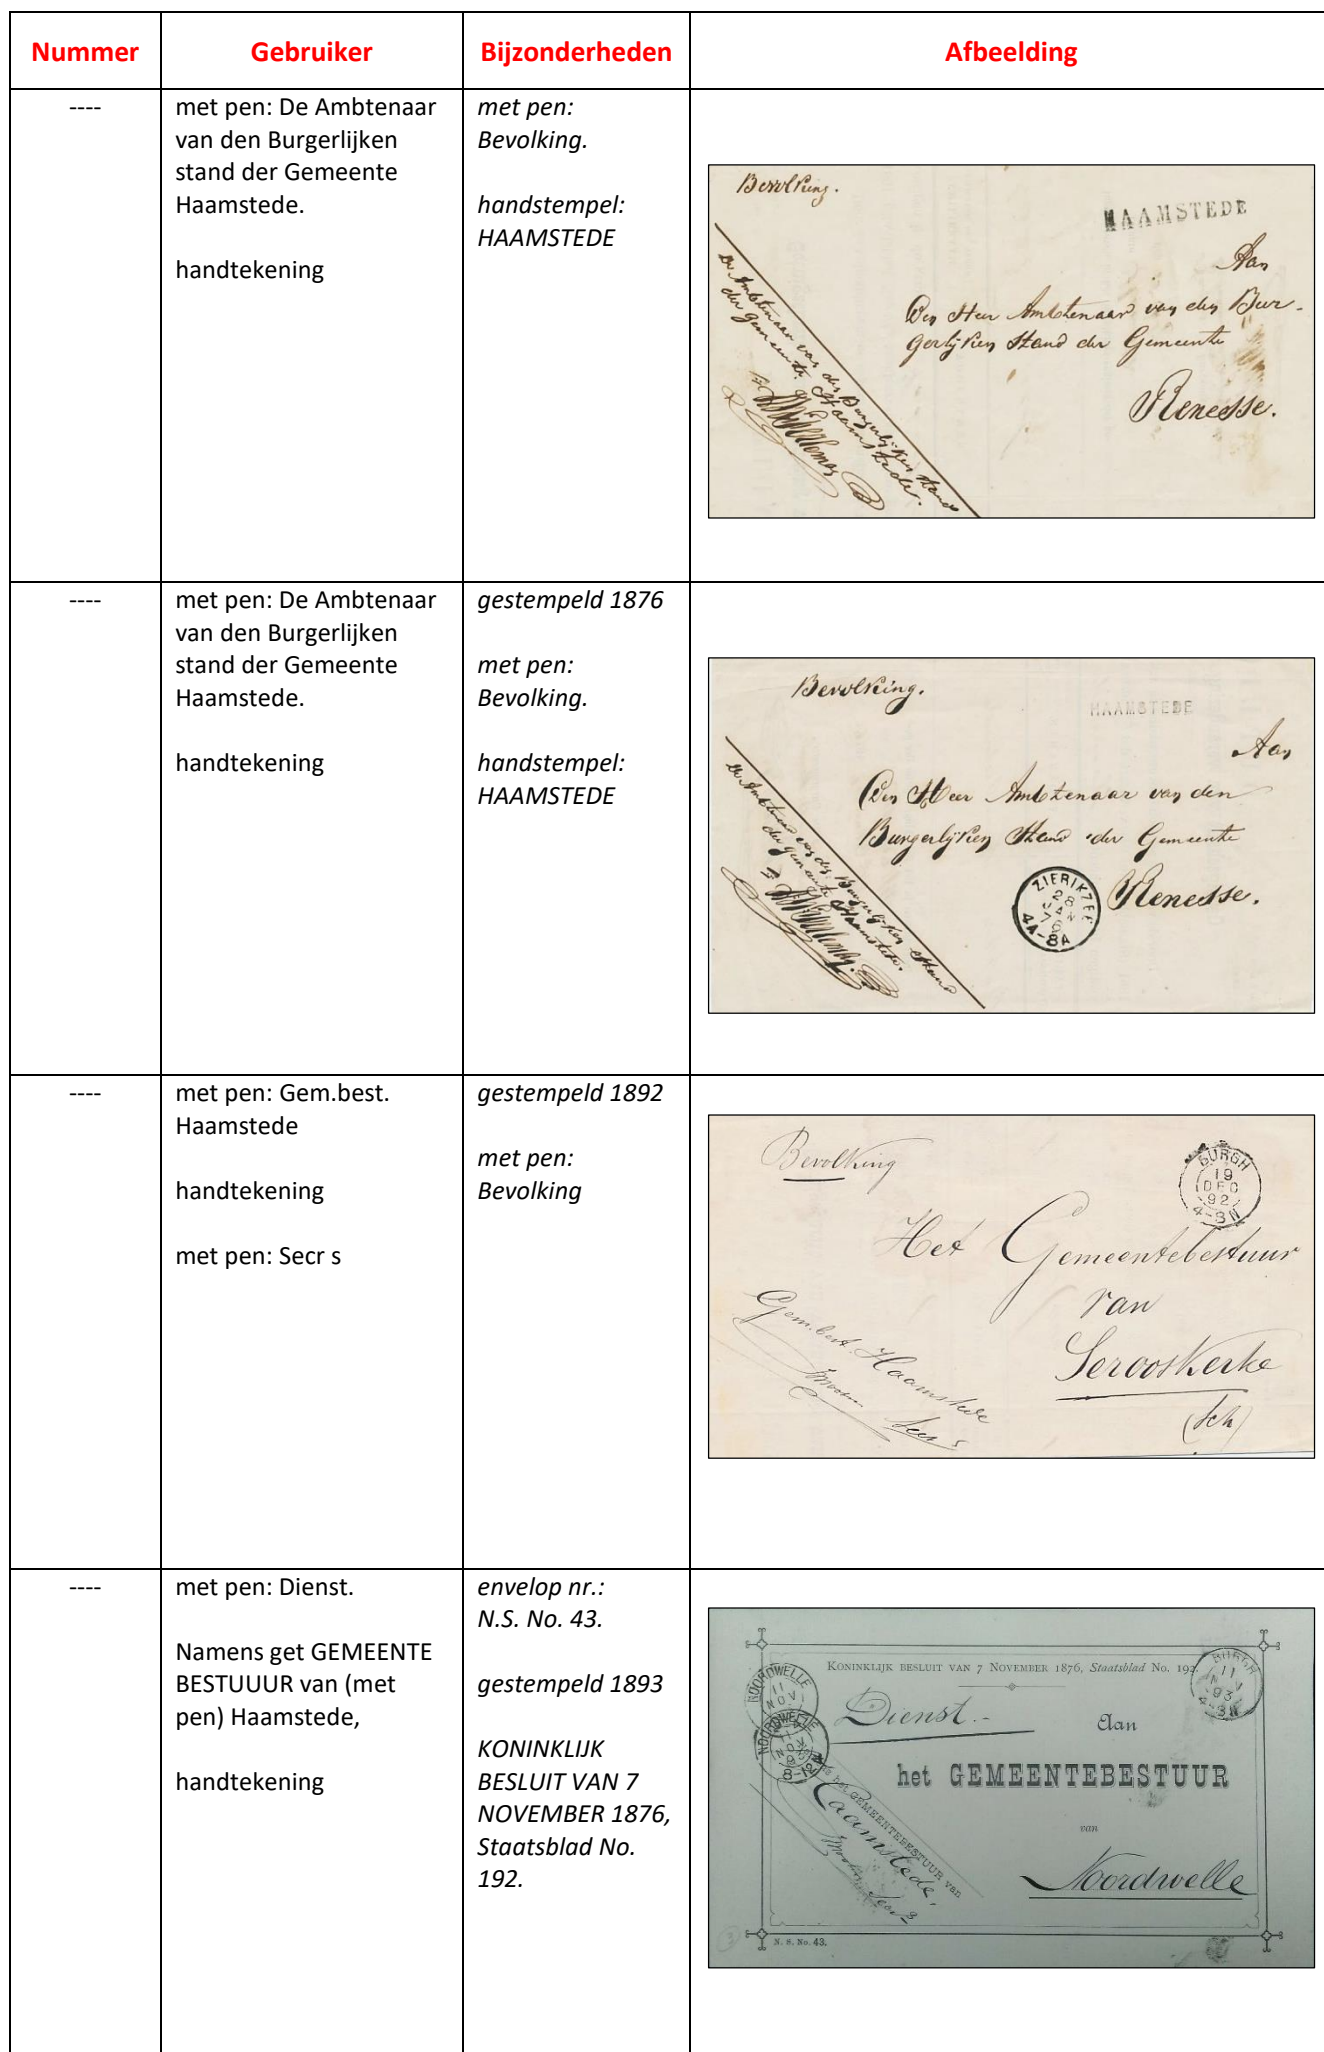 Nummer Gebruiker Bijzonderheden Afbeelding
----
met pen: De Ambtenaar
van den Burgerlijken
stand der Gemeente
Haamstede.
handtekening
met pen:
Bevolking.
handstempel:
HAAMSTEDE
Bevolking.
HAAMSTEDE
Aan
Den Heer Ambtenaar van den Bur-
gerlijken Stand der Gemeente
Renesse.
De Ambtenaar van den Burgerlijken Stand
der gemeente Haamstede.
----
met pen: De Ambtenaar
van den Burgerlijken
stand der Gemeente
Haamstede.
handtekening
gestempeld 1876
met pen:
Bevolking.
handstempel:
HAAMSTEDE
Bevolking.
HAAMSTEDE
Aan
Den Heer Ambtenaar van den
Burgerlijken Stand der Gemeente
Renesse.
ZIERIKZEE
28
JAN
76
4A-8A
De Ambtenaar van den Burgerlijken Stand
der gemeente Haamstede.
----
met pen: Gem.best.
Haamstede
handtekening
met pen: Secr s
gestempeld 1892
met pen:
Bevolking
Bevolking
BURGH
19
DEC
92
4-8N
Het Gemeentebestuur
van
Serooskerke
(Sch)
Gem. best. Haamstede
Secr s
----
met pen: Dienst.
Namens get GEMEENTE
BESTUUUR van (met
pen) Haamstede,
handtekening
envelop nr.:
N.S. No. 43.
gestempeld 1893
KONINKLIJK
BESLUIT VAN 7
NOVEMBER 1876,
Staatsblad No.
192.
KONINKLIJK BESLUIT VAN 7 NOVEMBER 1876, Staatsblad No. 192.
NOORDWELLE
11
NOV
NOORDWELLE
11
NOV
93
8-12
BURGH
11
NOV
93
4-8N
Dienst.-
Aan
het GEMEENTEBESTUUR
van
Noordwelle
GEMEENTEBESTUUR van
Haamstede,
Secr s
N. S. No. 43.